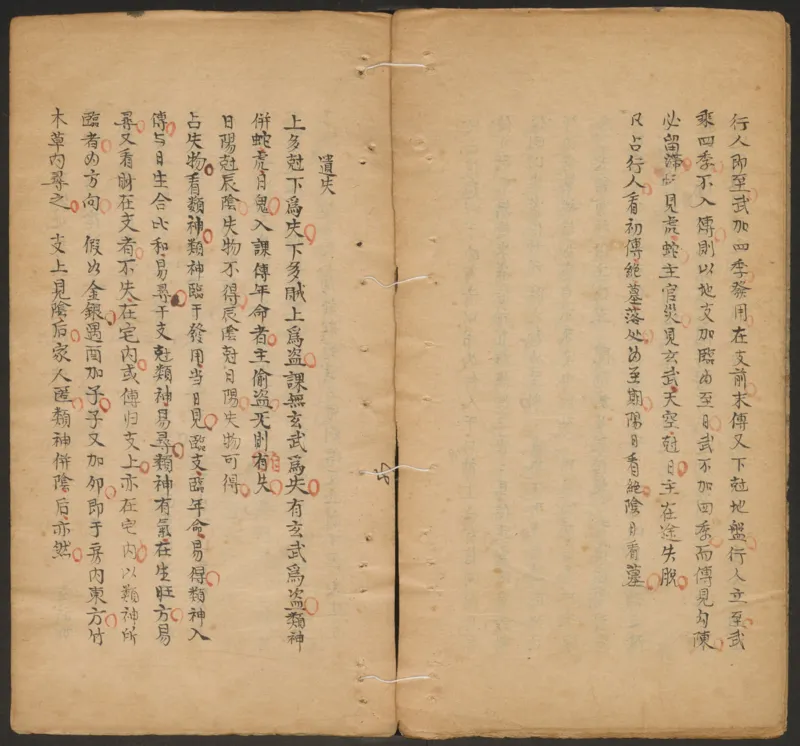 行人即至武加四季發用在支前末傳又下尅地盤行人立至武
乘四季不入傳則以地支加臨為至日武不加四季而傳見勾陳
必留滯見虎蛇主官災見玄武天空尅日主在途失脫
凡占行人看初傳絕墓落处為至期陽日看絕陰日看墓
遺失
上多尅下為失下多賊上為盜課無玄武為失有玄武為盜類神
併蛇虎日鬼入課傳年命者主偷盜旡則自失
日陽尅辰陰失物不得辰陰尅日陽失物可得
占失物看類神類神臨干發用當日見臨支臨年命易得類神入
傳与日生合比和易尋干支尅類神易尋類神有氣在生旺方易
尋又看財在支者不失在宅内或傳归支上亦在宅内以類神所
臨者為方向 假如金銀遇酉加子子又加卯即于房内東方竹
木草内尋之 支上見陰后家人匿類神併陰后亦然